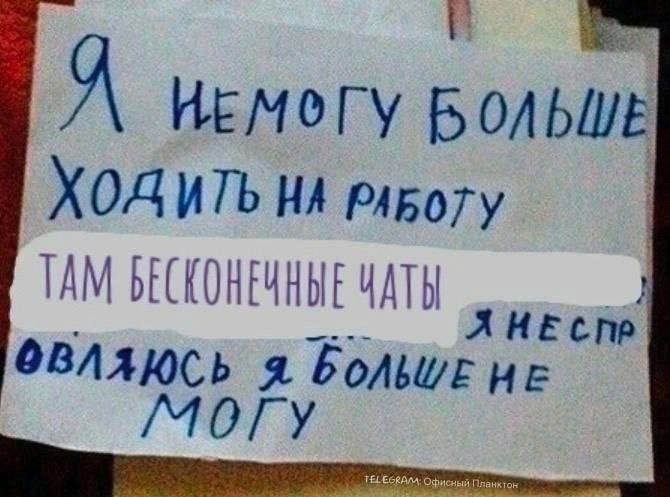 Я НЕМОГУ БОЛЬШЕ
ХОДИТЬ НА РАБОТУ
ТАМ БЕСКОНЕЧНЫЕ ЧАТЫ
Я НЕ СПР
ОВЛЯЮСЬ Я БОЛЬШЕ НЕ
МОГУ
TELEGRAM: Офисный Планктон